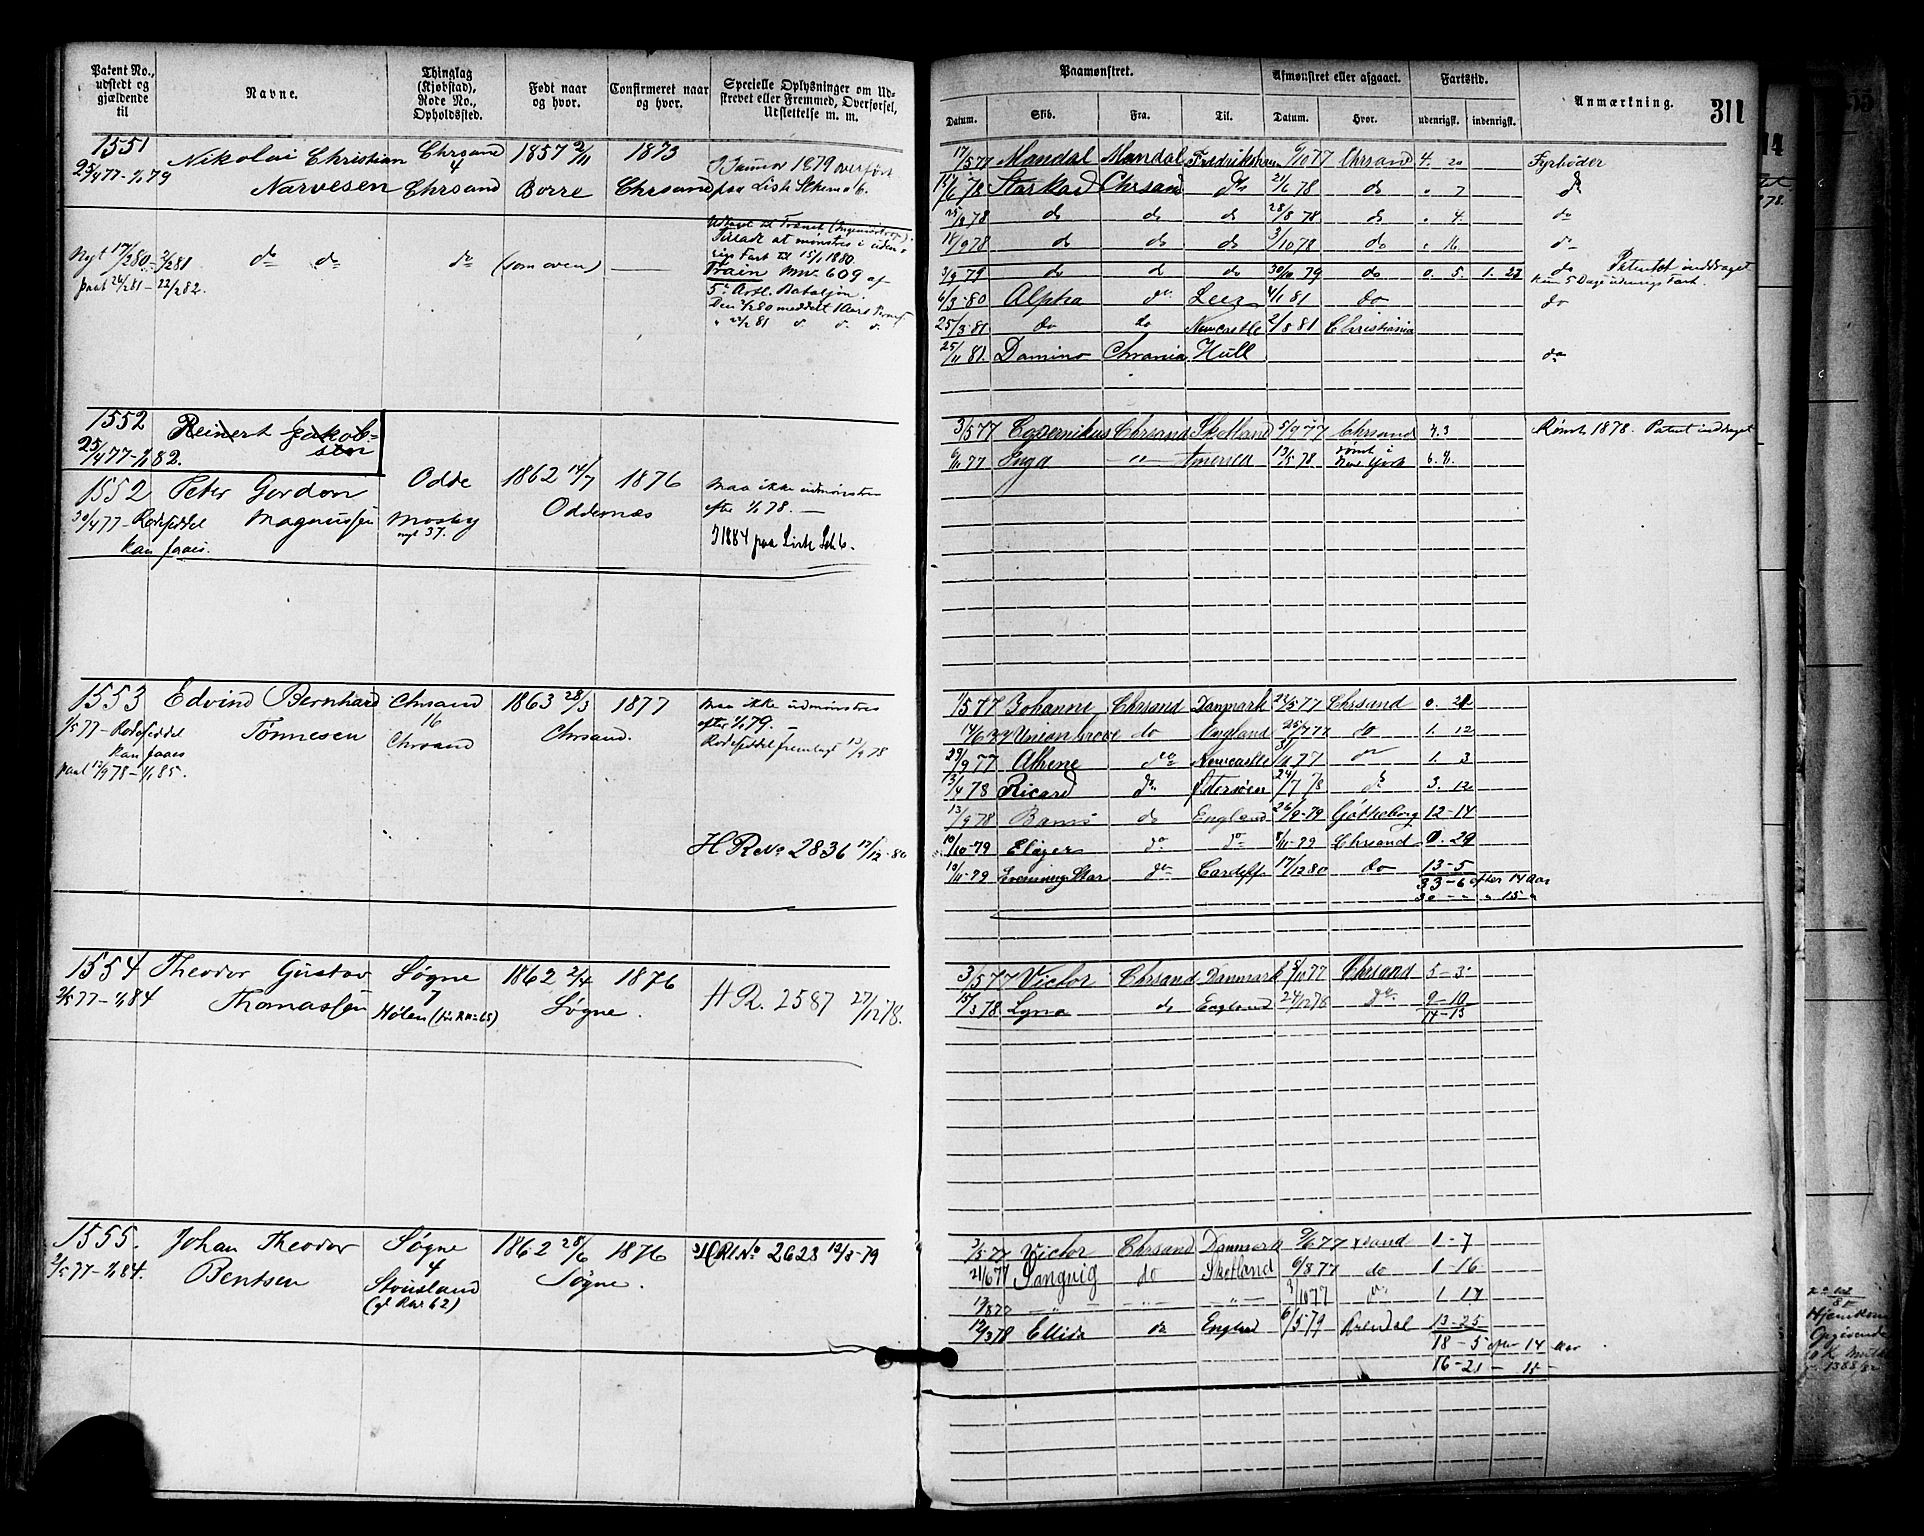 Patent No., udstedt og gjældende til
Navne.
Thinglag (Kjøbstad), Rode No., Opholdssted.
Født naar og hvor.
Confirmeret naar og hvor.
Specielle Oplysninger om Udskrevet eller Fremmed, Overførsel, Udslettelse m. m.
Paamønstret.
Afmønstret eller afgaaet.
Fartstid.
Anmærkning.
311
Datum.
Skib.
Fra.
Til.
Datum.
Hvor.
udenrigsk.
indenrigsk.
1551 Nikolai Christian Chrsand 1857 2/11 1873
25/4 77 - 1/1 79 Narvesen 4 Chrsand Borre Chrsand
I Januar 1879 overført
paa Liste Skema 6.
Nyt 17/2 80 - 2/2 81 do do do (som oven)
Tilladt at mønstres i uden-
rigs Fart til 15/1 1880.
Train No. 609 af
5te Artl. Bataljon.
17/5 77 Mandal Mandal 6/10 77 Chrsand 4. 20 Fyrbøder
15/6 78 Starkad Chrsand do 21/6 78 do " 7 do
25/8 78 do do do 28/8 78 do " 4. do
18/9 78 do do do 3/10 78 do " 16 do
3/9 79 do do do 30/10 79 do 0. 5. 1. 23 do Patentet inddraget
kun 5 Dage udenrigs Fart.
6/3 80 Alpha do 4/1 81 do do
25/3 81 do do Newcastle 2/8 81 Christiania
25/11 81 Domino Chrania Hull do
1552 Reinert Jakob-
25/4 77 - 1/1 82. sen
1552 Peter Gordon Odde 1862 14/7 1876 maa ikke udmønstres
30/4 77 - Rodeseddel Magnussen Mosby Oddernæs efter 1/1 78.
kan faaes. nyt 37. I 1884 paa Liste Sch 6.
3/5 77 Copernikus Chrsand Skotland 5/9 77 Chrsand 4. 3 Rømt 1878. Patent inddraget
6/11 77 Inga " America 13/5 78 rømt i New York 6. 8.
1553 Edvind Bernhard Chrsand 1863 28/3 1877 maa ikke udmønstres
1/5 77 - Rodeseddel Tønnesen 16 Chrsand. efter 1/1 79.
kan faaes Chrsand Rodeseddel fremlagt 13/9 78
pat 12/9 78 - 1/1 85.
H R No 2836 17/12 - 80
1/5 77 Johanne Chrsand Danmark 22/5 77 Chrsand 0. 21
14/6 77 do England 25/7 77 do 1. 12
29/9 77 Athene do Newcastle 77 do 1. 3
13/4 78 Ricard do Østersøen 24/7 78 do 3. 12
13/9 78 do England 26/9 - 79 Gøtheborg 12 - 14
10/10 - 79 Eliezer do do 8/11 - 79 Chrsand 0. 29
13/11 - 79 Evening Star do Cardiff 17/12 80 do 13 - 5
33 - 6 efter 14 Aar
30 - " " 15 "
1554 Theodor Gustav Søgne 1862 2/4 1876
2/5 77 - 1/1 84 Thomassen 7 Søgne. H R. 2587 27/12 78.
Hølen
3/5 77 Victor Chrsand Danmark 5/10 77 Chrsand 5 - 3
15/3 78. Lyna do England 24/12 78 do 9 - 10
14 - 13
1555. Johan Theodor Søgne 1862 28/6 1876 H R No 2623 12/8 - 79
2/5 77 - 1/1 84. Bentsen 4 Søgne.
Stousland
3/5 77 Victor Chrsand Danmark 9/6 77 Xsand 1 - 7
21/6 77 Sangvig do Skotland 6/8 77 do 1 - 16
17/8 77 — " — " — " — 3/10 77 do 1. 17
12/3 78 Ellida do England 6/5 79 Arendal 13 - 25
18 - 5 efter 14 Aar
16 - 21 - 15 -